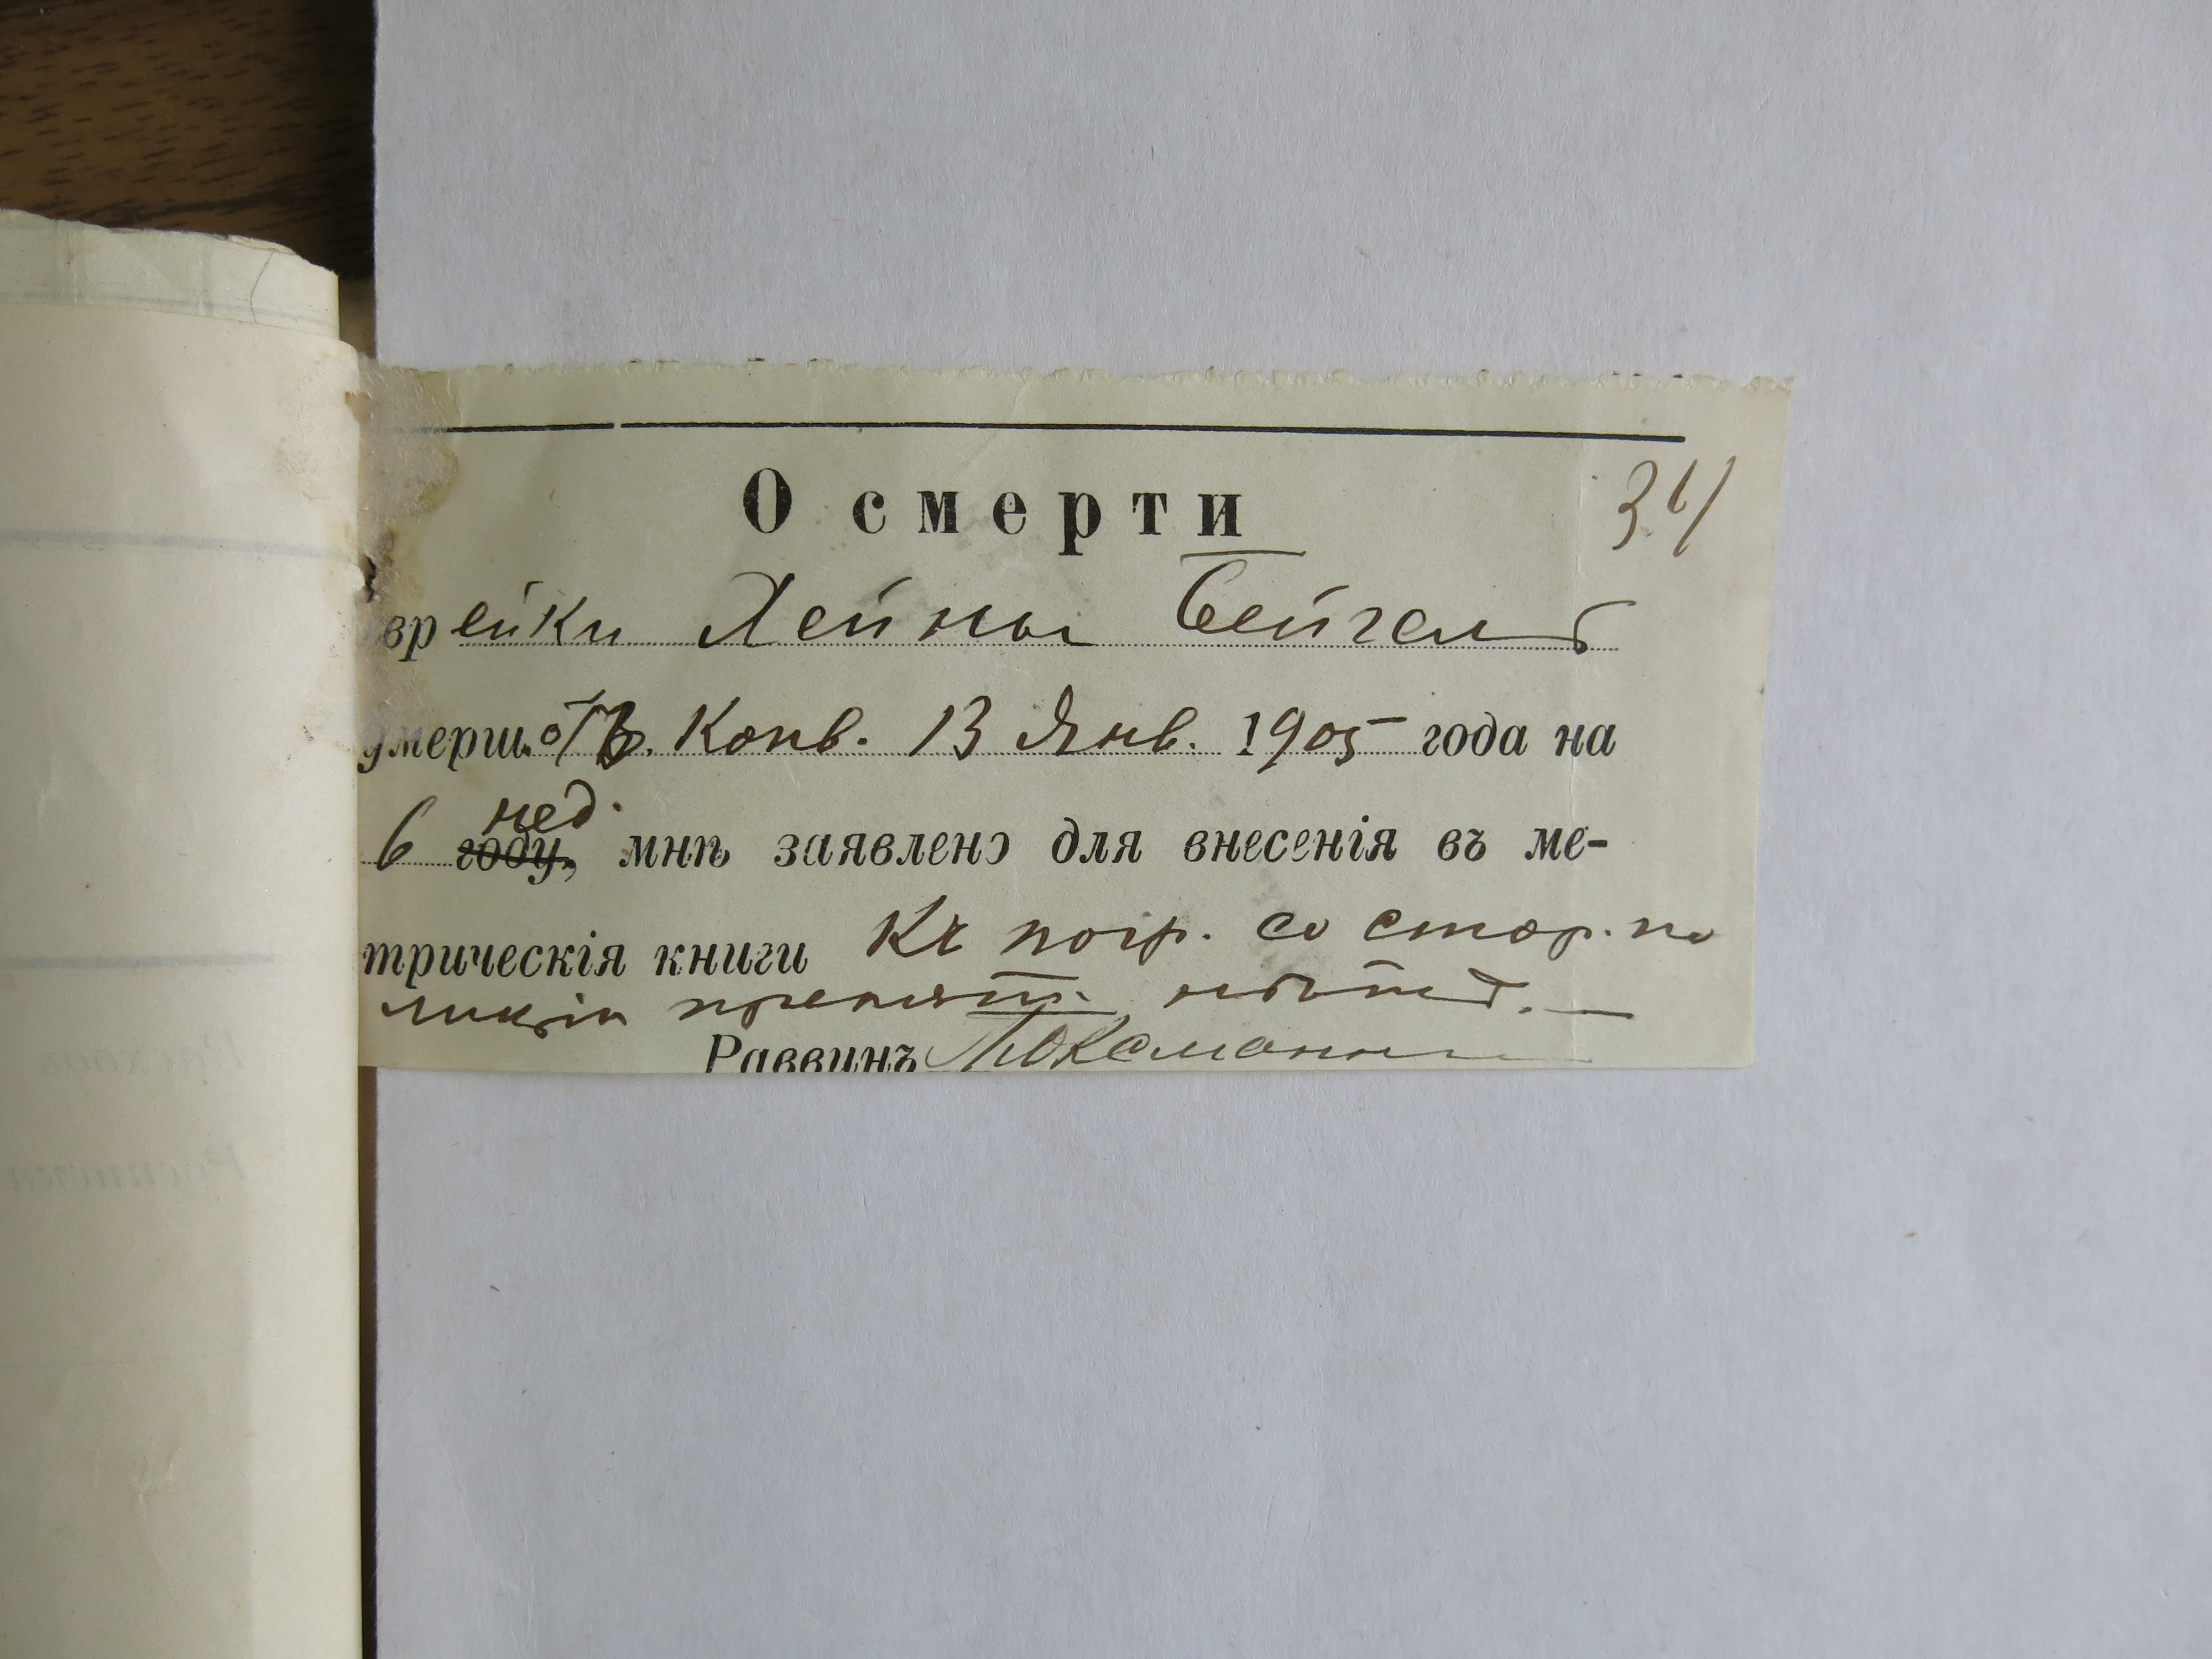 О смерти
34
врейки Хейны Бейгель
умерш. отъ Конв. 13 Янв. 1905 года на
6 нед. году, мнѣ заявлено для внесенія въ ме-
трическія книги Къ погр. со стор. по
лиціи препятст.
Раввинъ